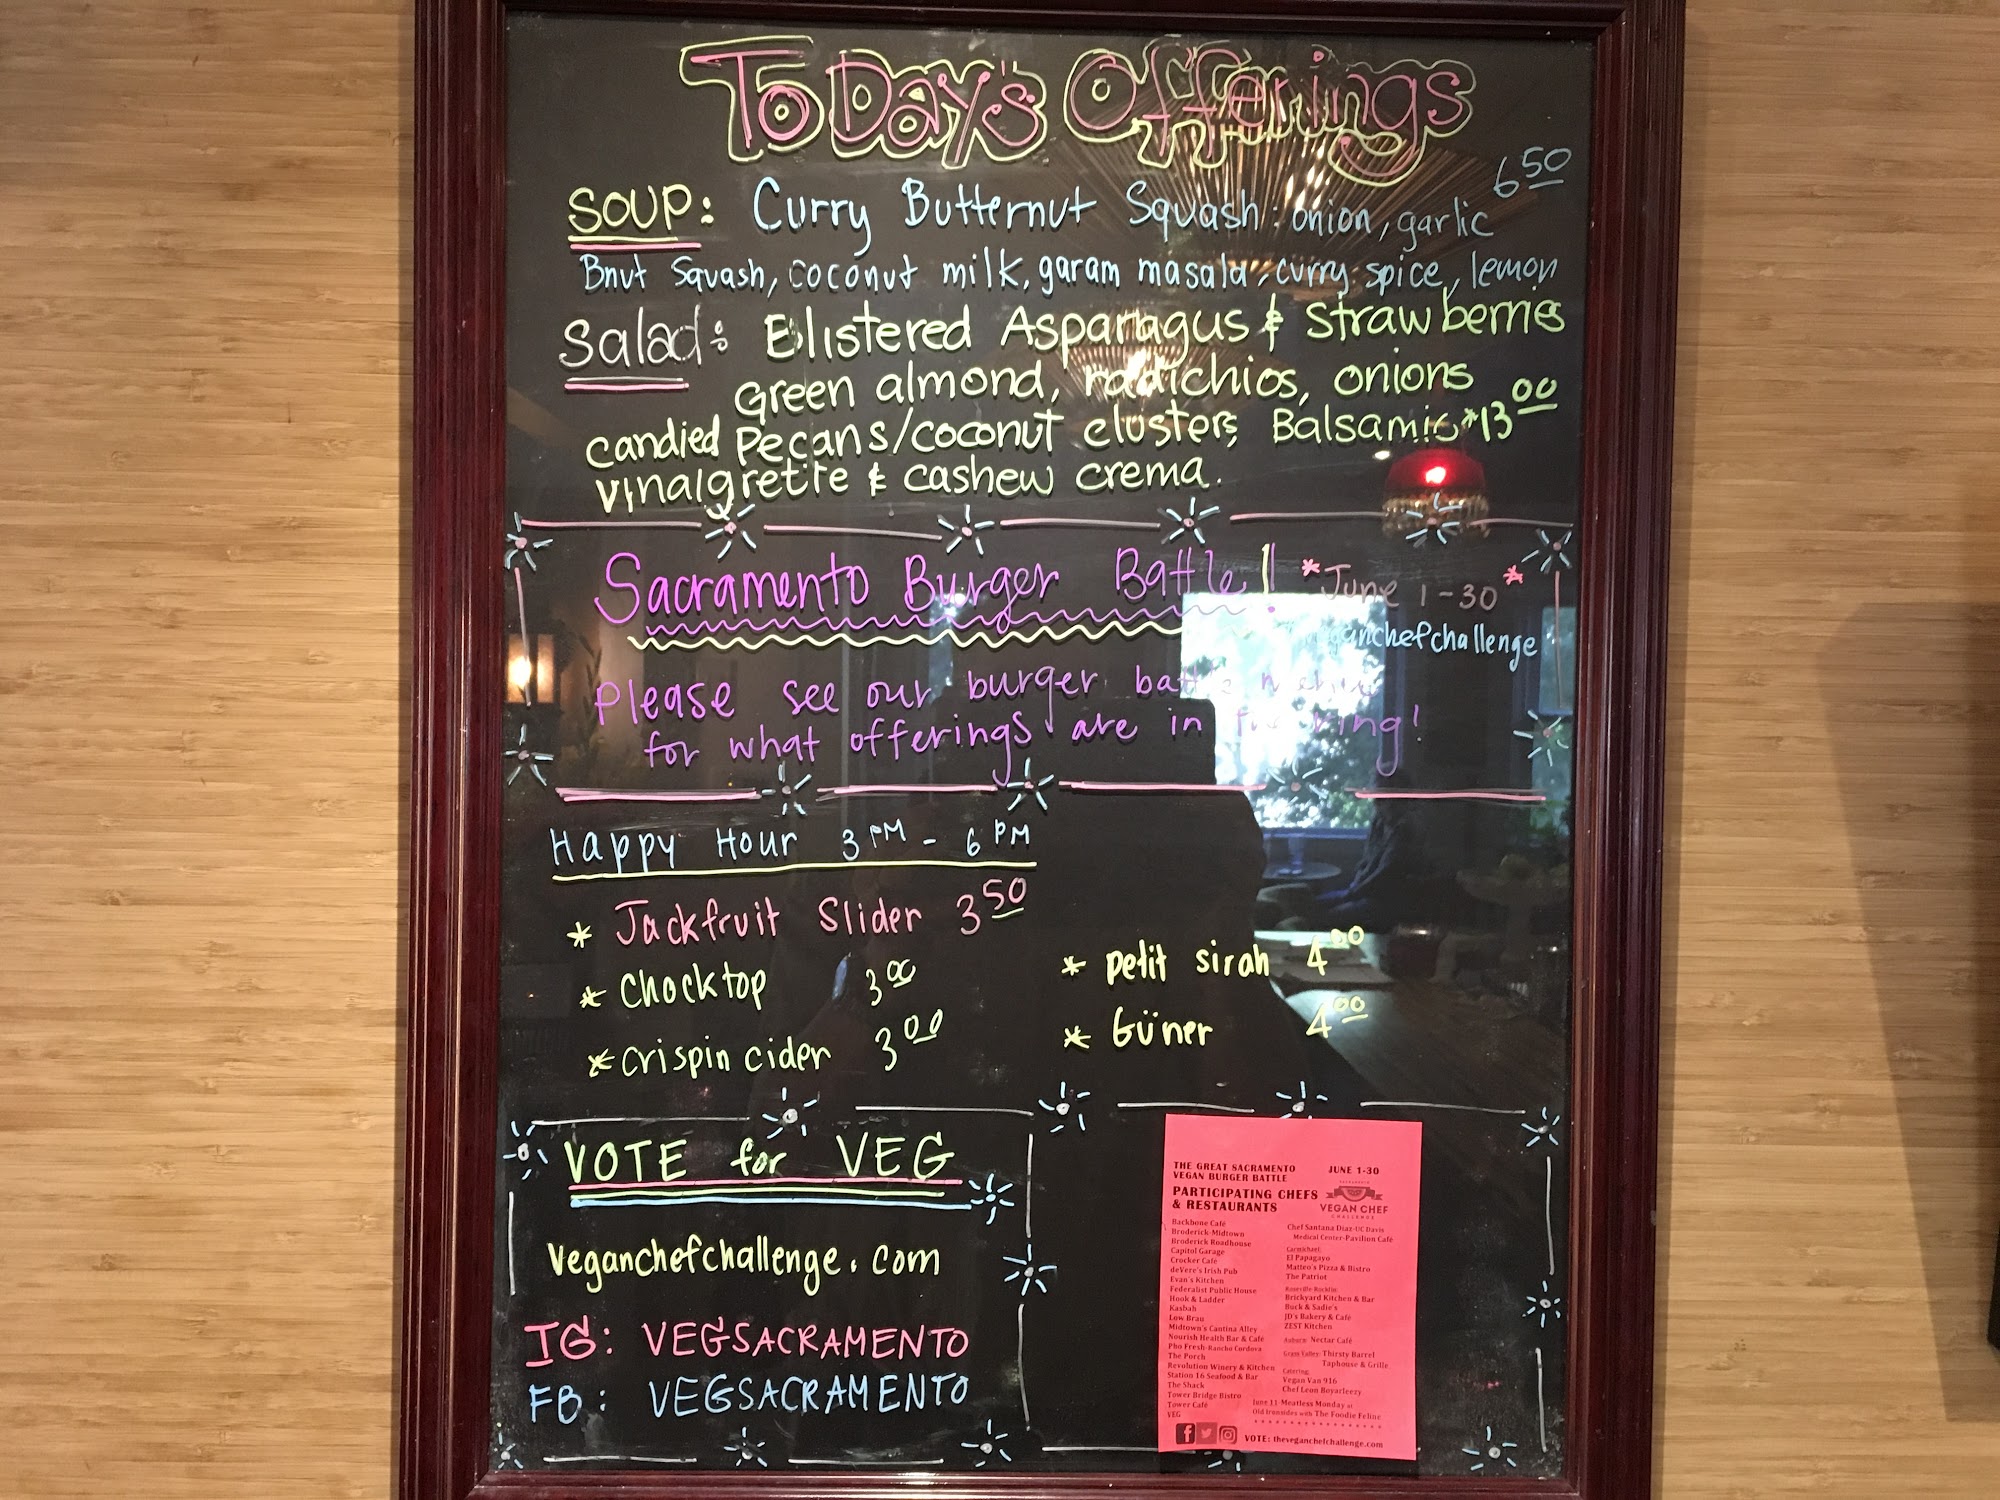 ToDay's Offerings
SOUP: Curry Butternut Squash: onion, garlic 6 50
Bnut Squash, coconut milk, garam masala, curry spice, lemon
Salad: Blistered Asparagus & Strawberries
green almond, radichios, onions
candied Pecans/coconut clusters, Balsamic *13 00
vinaigrette & cashew crema.
Sacramento Burger Battle! *June 1-30*
ganchefchallenge
Please see our burger battle menu
for what offerings are in the ring!
Happy Hour 3 PM - 6 PM
* Jackfruit Slider 3 50
* Chocktop 3 00
* Crispin cider 3 00
* Petit sirah 4 00
* Güner 4 00
VOTE for VEG
veganchefchallenge.com
IG: VEGSACRAMENTO
FB: VEGSACRAMENTO
THE GREAT SACRAMENTO
VEGAN BURGER BATTLE
JUNE 1-30
PARTICIPATING CHEFS
& RESTAURANTS
VEGAN CHEF
CHALLENGE
Backbone Café
Broderick-Midtown
Broderick Roadhouse
Capitol Garage
Crocker Café
deVere's Irish Pub
Evan's Kitchen
Federalist Public House
Hook & Ladder
Kasbah
Low Brau
Midtown's Cantina Alley
Nourish Health Bar & Café
Pho Fresh-Rancho Cordova
The Porch
Revolution Winery & Kitchen
Station 16 Seafood & Bar
The Shack
Tower Bridge Bistro
Tower Café
VEG
Chef Santana Diaz-UC Davis
Medical Center-Pavilion Café
Carmichael:
El Papagayo
Matteo's Pizza & Bistro
The Patriot
Brickyard Kitchen & Bar
Buck & Sadie's
JD's Bakery & Café
ZEST Kitchen
Auburn: Nectar Café
Grass Valley: Thirsty Barrel
Taphouse & Grille
Catering:
Vegan Van 916
Chef Leon Boyarleezy
June 11 Meatless Monday at
Old Ironsides with The Foodie Feline
VOTE: theveganchefchallenge.com